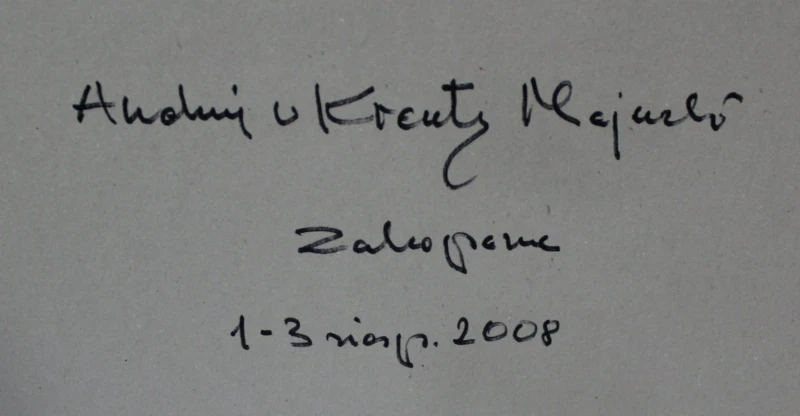 Andrzej v Kreutz Majewski
Zakopane
1-3 sierp. 2008